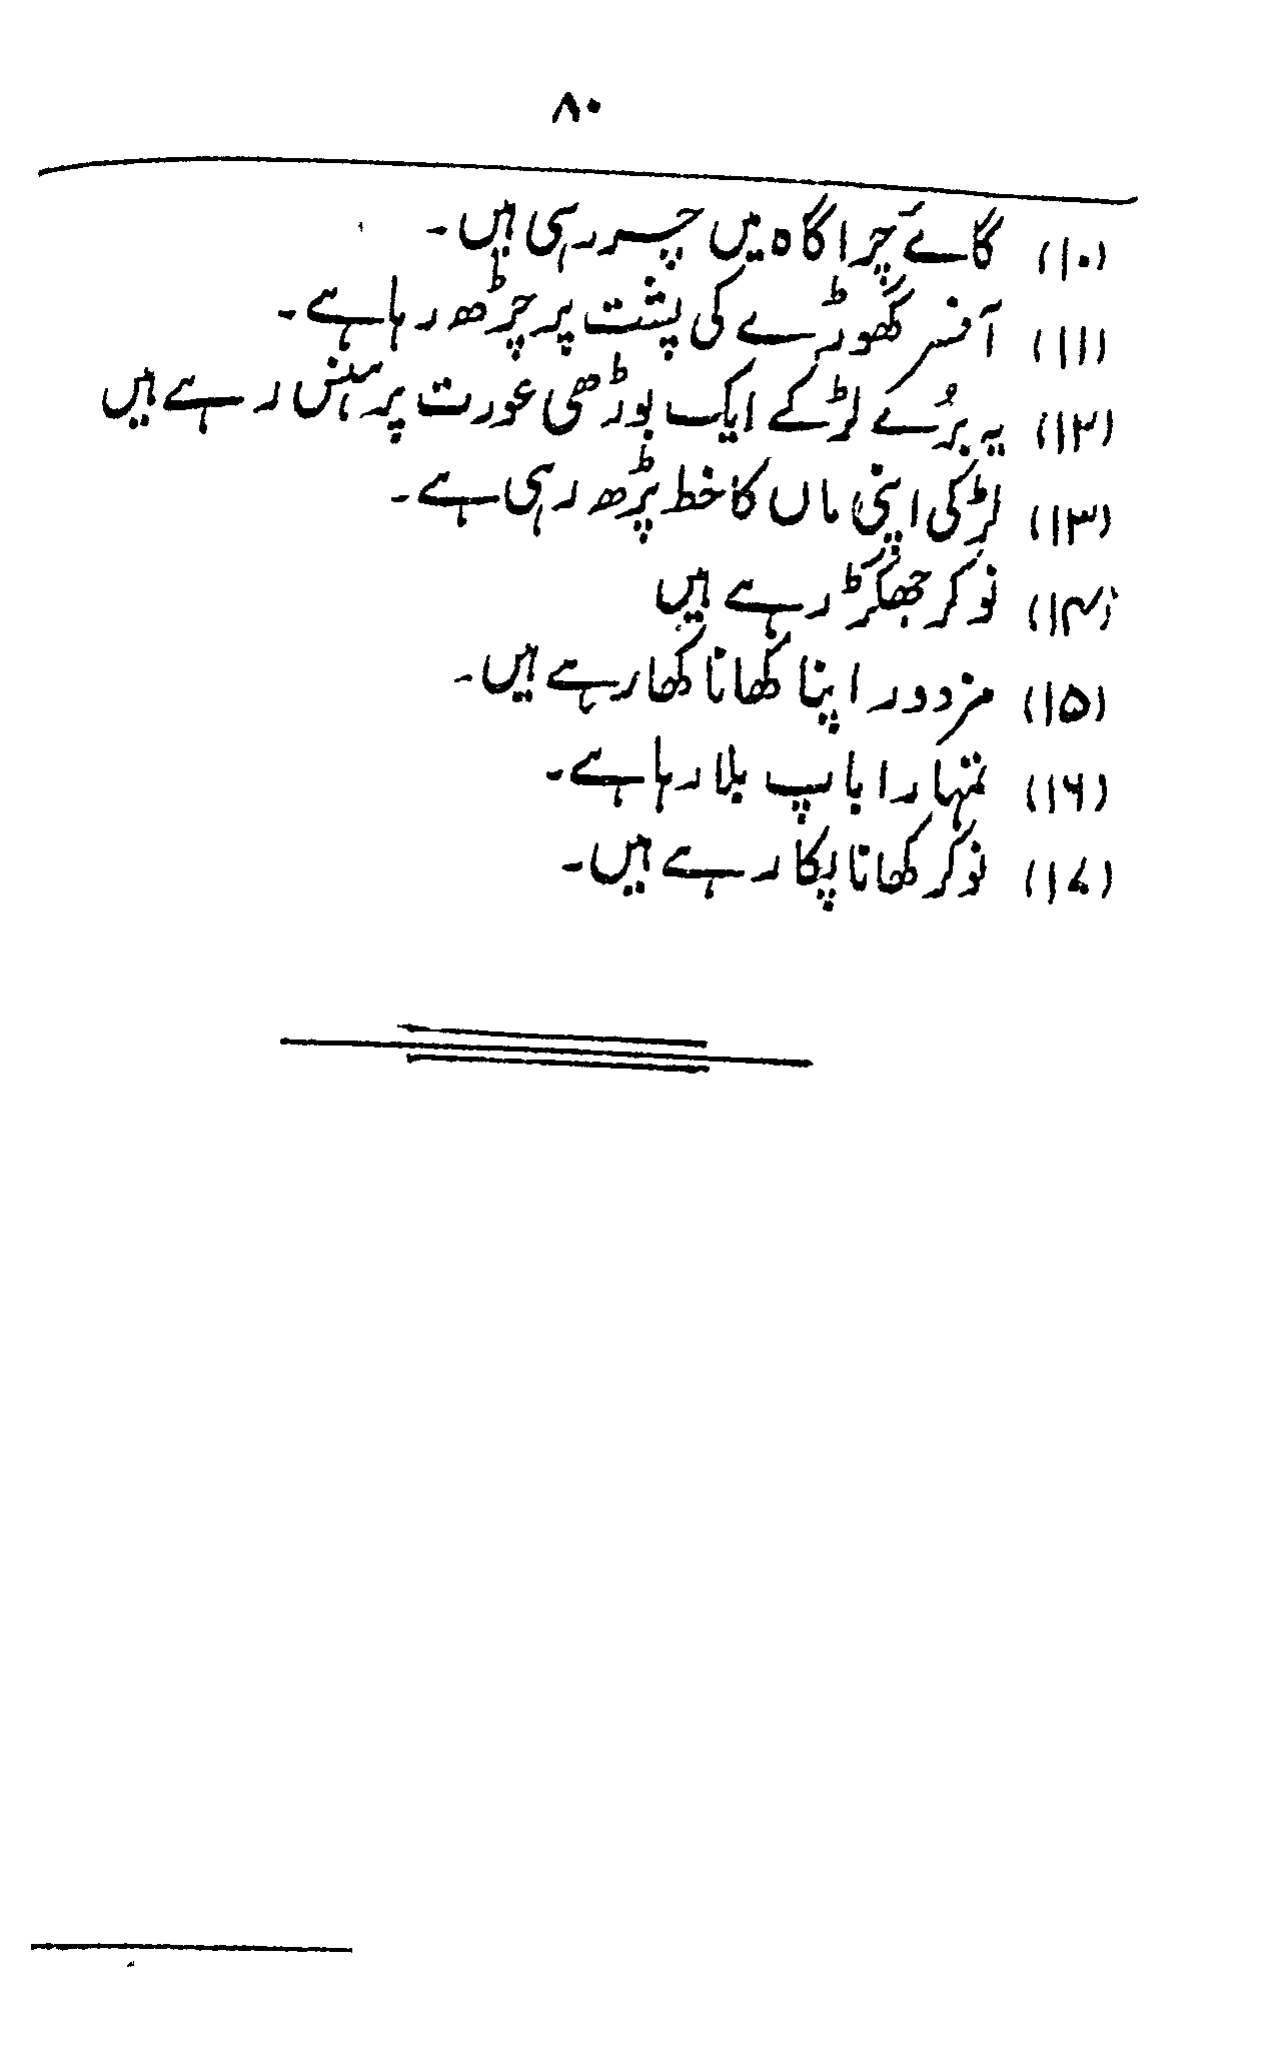 ۸۰
(۱۰) گائے چراگاہ میں چر رہی ہیں۔
(۱۱) آفسر گھوڑے کی پشت پر چڑھ رہا ہے۔
(۱۲) یہ بُرے لڑکے ایک بوڑھی عورت پر ہنس رہے ہیں
(۱۳) لڑکی اپنی ماں کا خط پڑھ رہی ہے۔
(۱۴) نوکر جھگڑ رہے ہیں
(۱۵) مزدور اپنا کھانا کھا رہے ہیں۔
(۱۶) تمہارا باپ بلا رہا ہے۔
(۱۷) نوکر کھانا پکا رہے ہیں۔